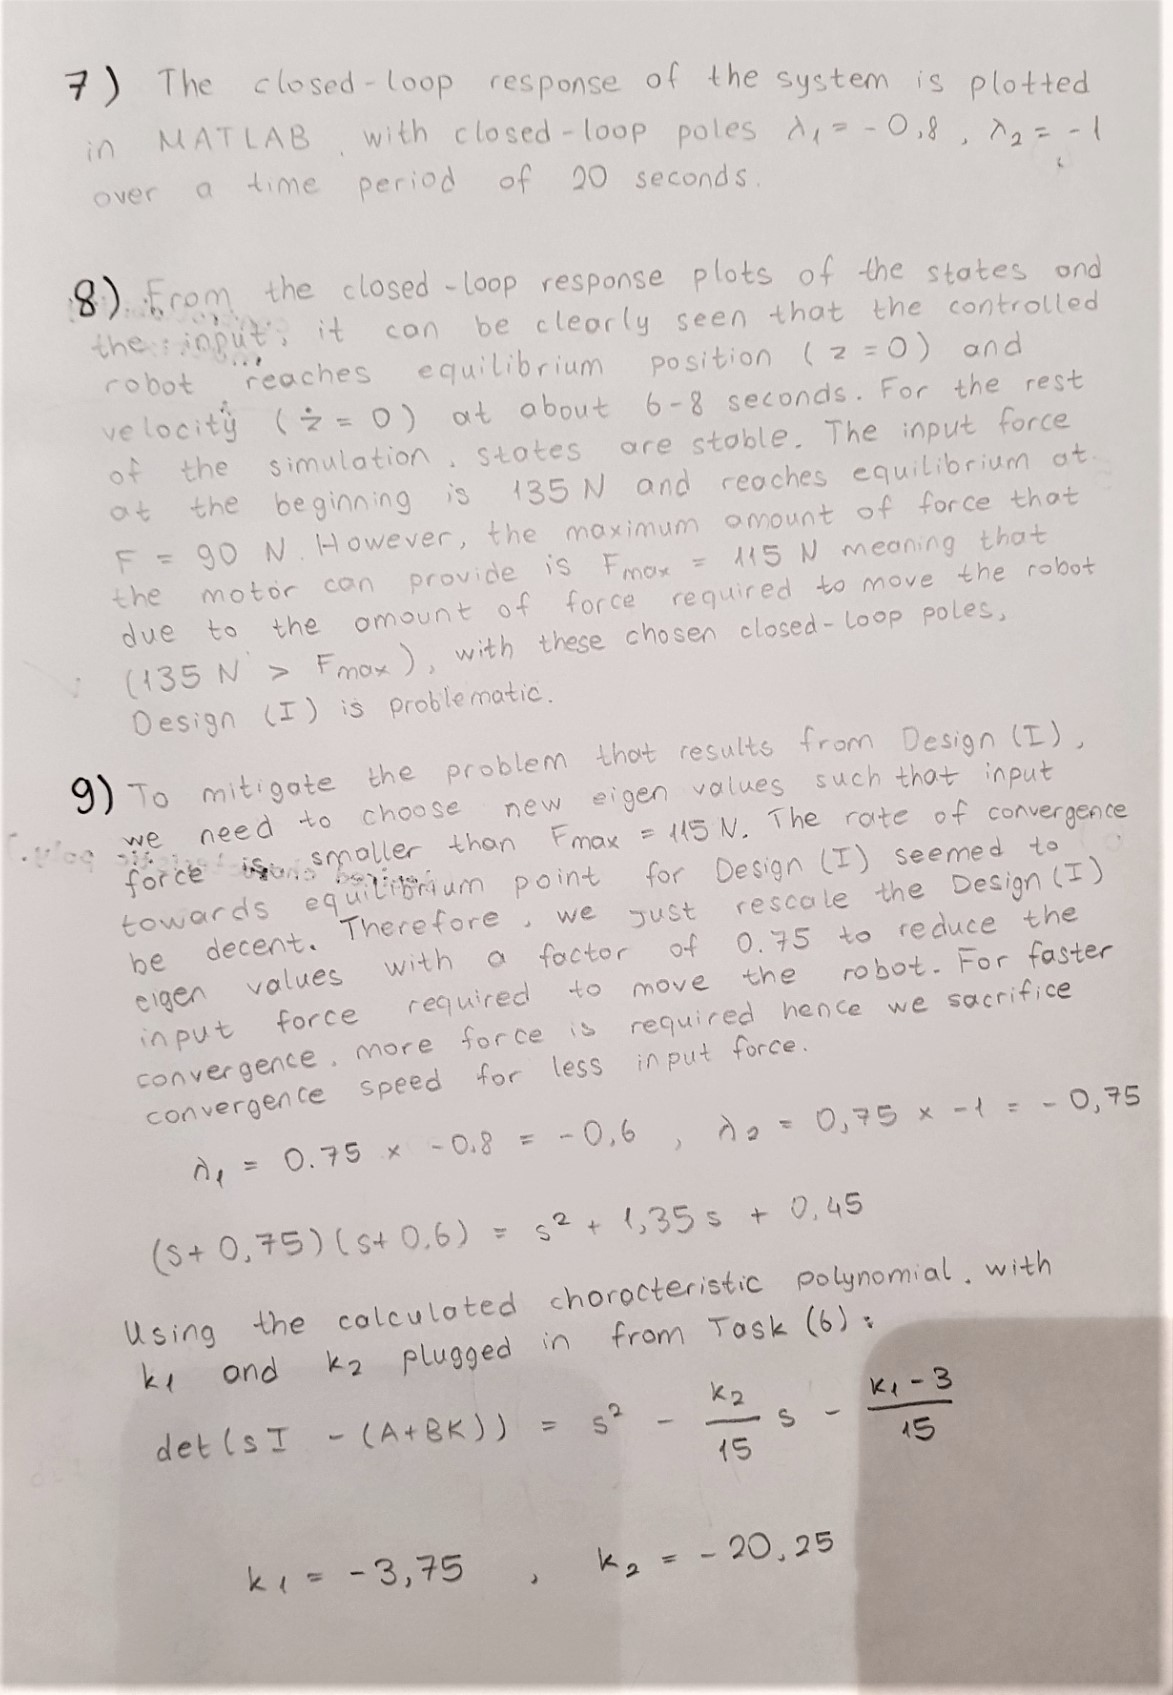 7) The closed-loop response of the system is plotted
in MATLAB, with closed-loop poles λ₁ = -0,8, λ₂ = -1
over a time period of 20 seconds.
8) From the closed-loop response plots of the states and
the input, it can be clearly seen that the controlled
robot reaches equilibrium position (z=0) and
velocity (ż = 0) at about 6-8 seconds. For the rest
of the simulation, states are stable. The input force
at the beginning is 135 N and reaches equilibrium at
F = 90 N. However, the maximum amount of force that
the motor can provide is Fmax = 115 N meaning that
due to the amount of force required to move the robot
(135 N > Fmax), with these chosen closed-loop poles,
Design (I) is problematic.
9) To mitigate the problem that results from Design (I),
we need to choose new eigen values such that input
force is smaller than Fmax = 115 N. The rate of convergence
towards equilibrium point for Design (I) seemed to
be decent. Therefore, we just rescale the Design (I)
eigen values with a factor of 0.75 to reduce the
input force required to move the robot. For faster
convergence, more force is required hence we sacrifice
convergence speed for less input force.
λ₁ = 0.75 x -0.8 = -0,6 , λ₂ = 0,75 x -1 = -0,75
(s+0,75)(s+0.6) = s² + 1,35 s + 0.45
Using the calculated characteristic polynomial, with
k₁ and k₂ plugged in from Task (6):
det(sI - (A+BK)) = s² - k₂/15 s - k₁-3/15
k₁ = -3,75 , k₂ = -20,25